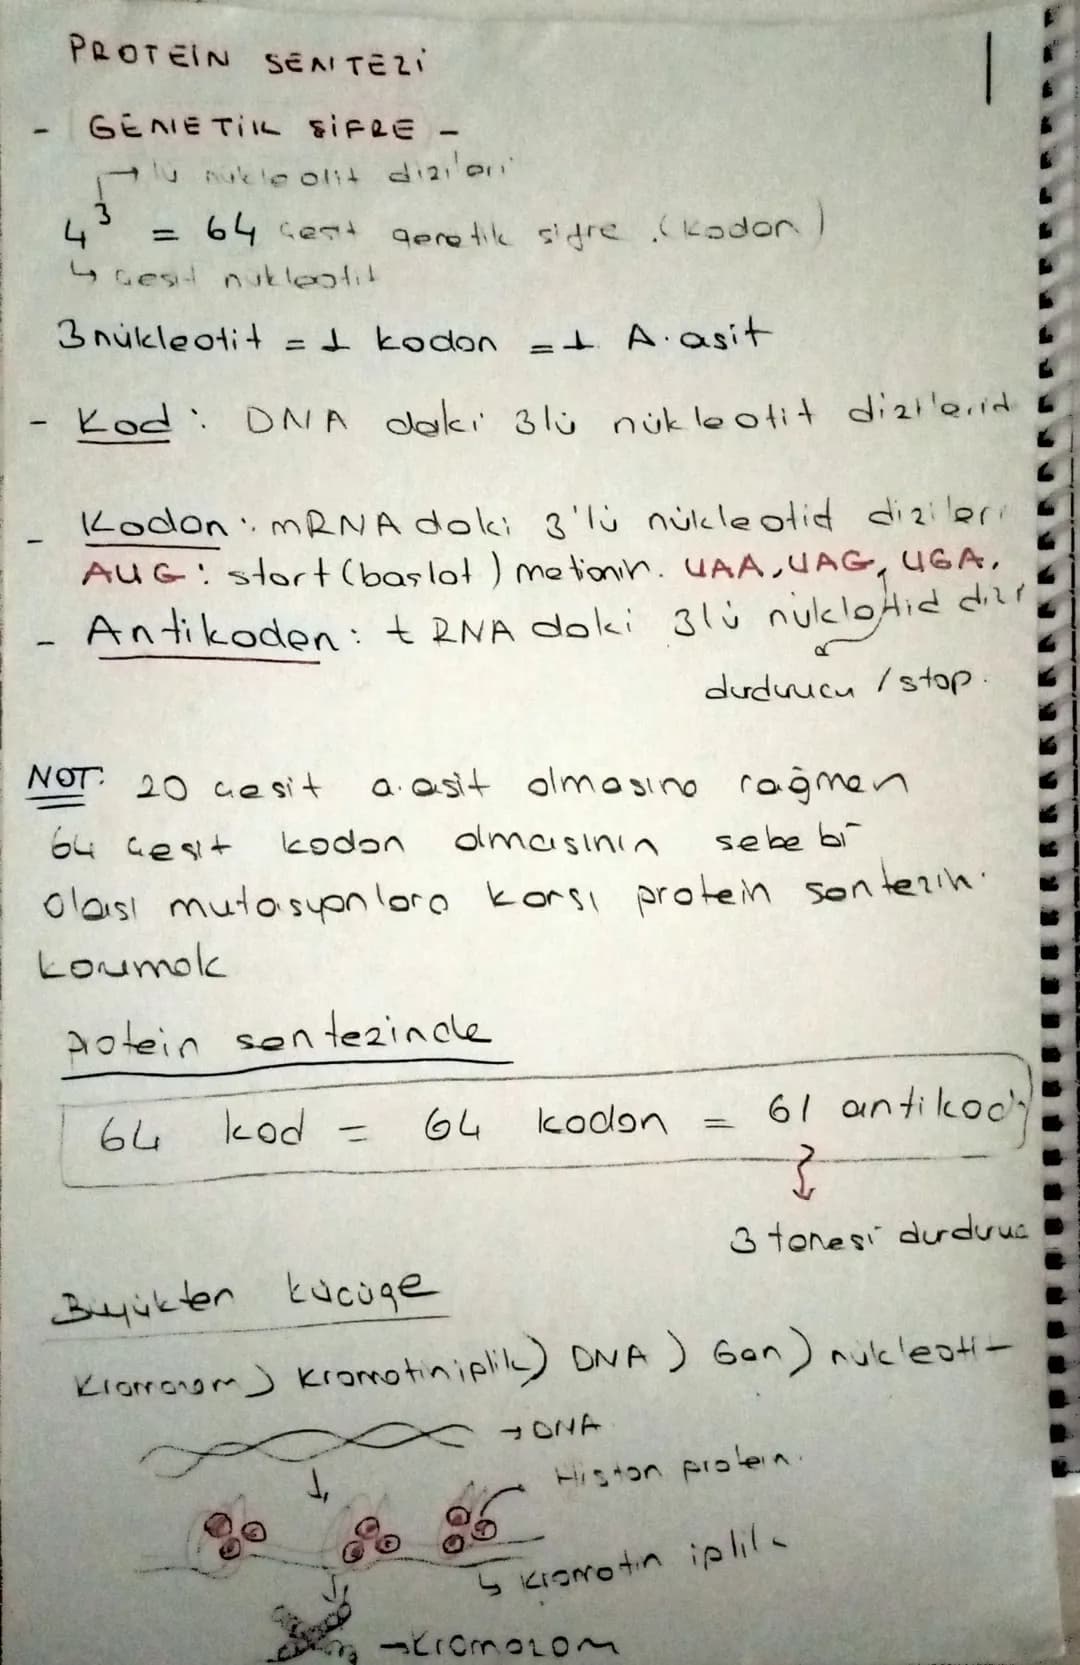 PROTEIN SENTEZİ
1
- GENETİK ŞİFRE -
→ lü nükleotit dizileri
4³ = 64 çeşit genetik şifre. (kodon)
↳ çeşit nükleotit
3 nükleotit = 1 kodon = 1. A. asit
- Kod: DNA daki 3lü nükleotit dizilerid
- Kodon: mRNA daki 3'lü nükleotid dizileri
AUG: start (başlat) metionin. UAA, UAG, UGA.
- Antikodon: tRNA daki 3lü nükleotid dizi
durdurucu / stop.
NOT: 20 çeşit a.asit olmasına rağmen
64 çeşit kodon olmasının sebebi
olası mutasyonlara karşı protein sentezin.
korumak
Protein sentezinde
64 kod = 64 kodon = 61 antikod
3 tanesi durduruc
Büyükten küçüğe
Kromozom) Kromatin iplik) DNA) Gen) nükleotit
→ DNA
Histon protein.
↳ Kromatin iplik
→ Kromozom